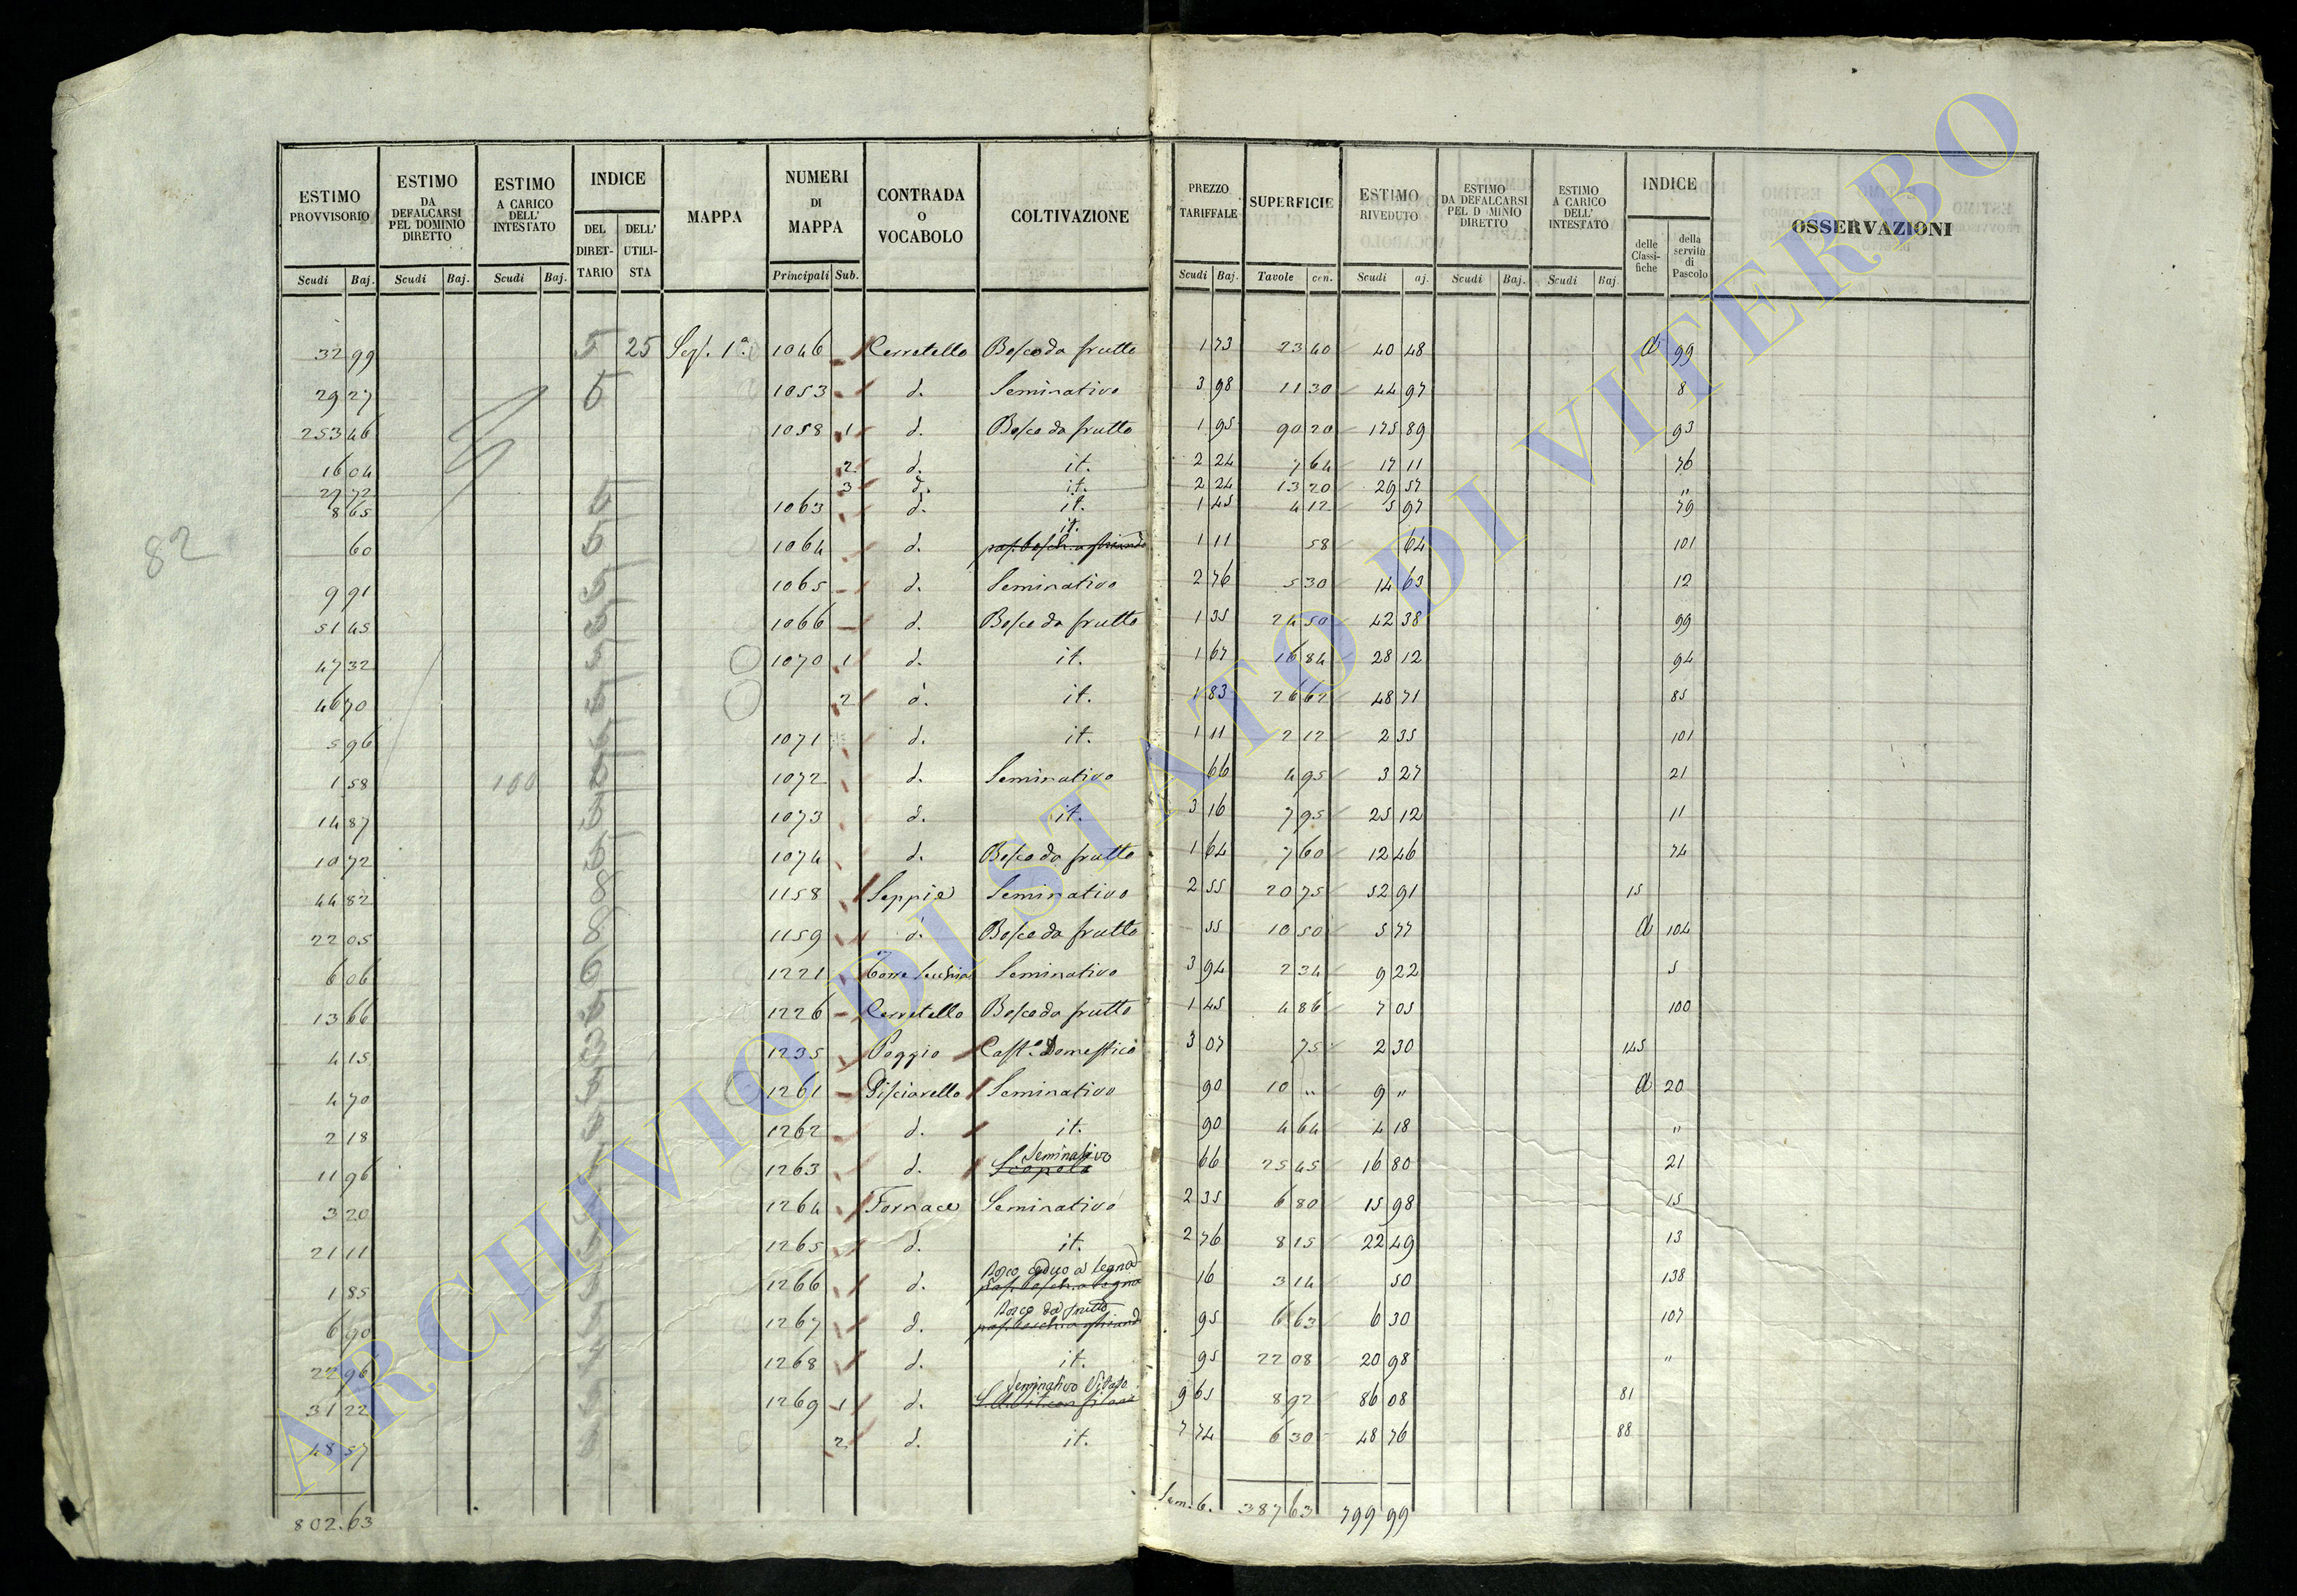 ESTIMO PROVVISORIO | ESTIMO DA DEFALCARSI PEL DOMINIO DIRETTO | ESTIMO A CARICO DELL' INTESTATO | INDICE | MAPPA | NUMERI DI MAPPA | CONTRADA O VOCABOLO | COLTIVAZIONE | PREZZO TARIFFALE | SUPERFICIE | ESTIMO RIVEDUTO | ESTIMO DA DEFALCARSI PEL D MINIO DIRETTO | ESTIMO A CARICO DELL' INTESTATO | INDICE | OSSERVAZIONI
DEL DIRETTARIO | DELL' UTILISTA | delle Classifiche | della servitù di Pascolo
Scudi | Baj. | Scudi | Baj. | Scudi | Baj. | Principali | Sub. | Scudi | Baj. | Tavole | cen. | Scudi | aj. | Scudi | Baj. | Scudi | Baj.
32 99 | 5 | 25 | 1a. | 1046 | Cerretello | Bosco da frutto | 1 73 | 23 40 | 40 48 | 99
29 27 | 5 | 1053 | d. | Seminativo | 3 98 | 11 30 | 44 97 | 8
253 46 | 1058 | 1 | d. | Bosco da frutto | 1 95 | 90 20 | 175 89 | 93
16 04 | 2 | d. | it. | 2 24 | 7 64 | 17 11 | 76
27 72 | 3 | d. | it. | 2 24 | 13 20 | 29 57 | "
8 65 | 1063 | d. | it. | 1 45 | 4 12 | 5 97 | 79
60 | 1064 | d. | it. | 1 11 | 58 | 64 | 101
9 91 | 1065 | d. | Seminativo | 2 76 | 5 30 | 14 63 | 12
51 45 | 1066 | d. | Bosco da frutto | 1 35 | 24 50 | 42 38 | 99
47 32 | 1070 | 1 | d. | it. | 1 67 | 16 84 | 28 12 | 94
46 70 | 2 | d. | it. | 1 83 | 26 62 | 48 71 | 85
5 96 | 1071 | d. | it. | 1 11 | 2 12 | 2 35 | 101
1 58 | 100 | 1072 | d. | Seminativo | 66 | 4 95 | 3 27 | 21
14 87 | 1073 | d. | it. | 3 16 | 7 95 | 25 12 | 11
10 72 | 1074 | d. | Bosco da frutto | 1 64 | 7 60 | 12 46 | 74
44 82 | 1158 | Seppie | Seminativo | 2 55 | 20 75 | 52 91 | 15
22 05 | 1159 | d. | Bosco da frutto | 55 | 10 50 | 5 77 | 104
6 06 | 1221 | Torre | Seminativo | 3 94 | 2 34 | 9 22 | 5
13 66 | 1226 | Cerretello | Bosco da frutto | 1 45 | 4 86 | 7 05 | 100
4 15 | 1235 | Poggio | Cast. Domestico | 3 07 | 75 | 2 30 | 145
4 70 | 1261 | Pisciarello | Seminativo | 90 | 10 " | 9 " | 20
2 18 | 1262 | d. | it. | 90 | 4 64 | 4 18 | "
11 96 | 1263 | d. | Seminativo | 66 | 25 45 | 16 80 | 21
3 20 | 1264 | Fornace | Seminativo | 2 35 | 6 80 | 15 98 | 15
21 11 | 1265 | d. | it. | 2 76 | 8 15 | 22 49 | 13
1 85 | 1266 | d. | Bosco ceduo a legna | 16 | 3 14 | 50 | 138
6 90 | 1267 | d. | Bosco da frutto | 95 | 6 63 | 6 30 | 107
22 96 | 1268 | d. | it. | 95 | 22 08 | 20 98 | "
31 22 | 1269 | 1 | d. | Seminativo Vitato | 9 65 | 8 92 | 86 08 | 81
48 57 | 2 | d. | it. | 7 74 | 6 30 | 48 76 | 88
802.63 | Sem. 6. | 387 63 | 799 99
82
ARCHIVIO DI STATO DI VITERBO